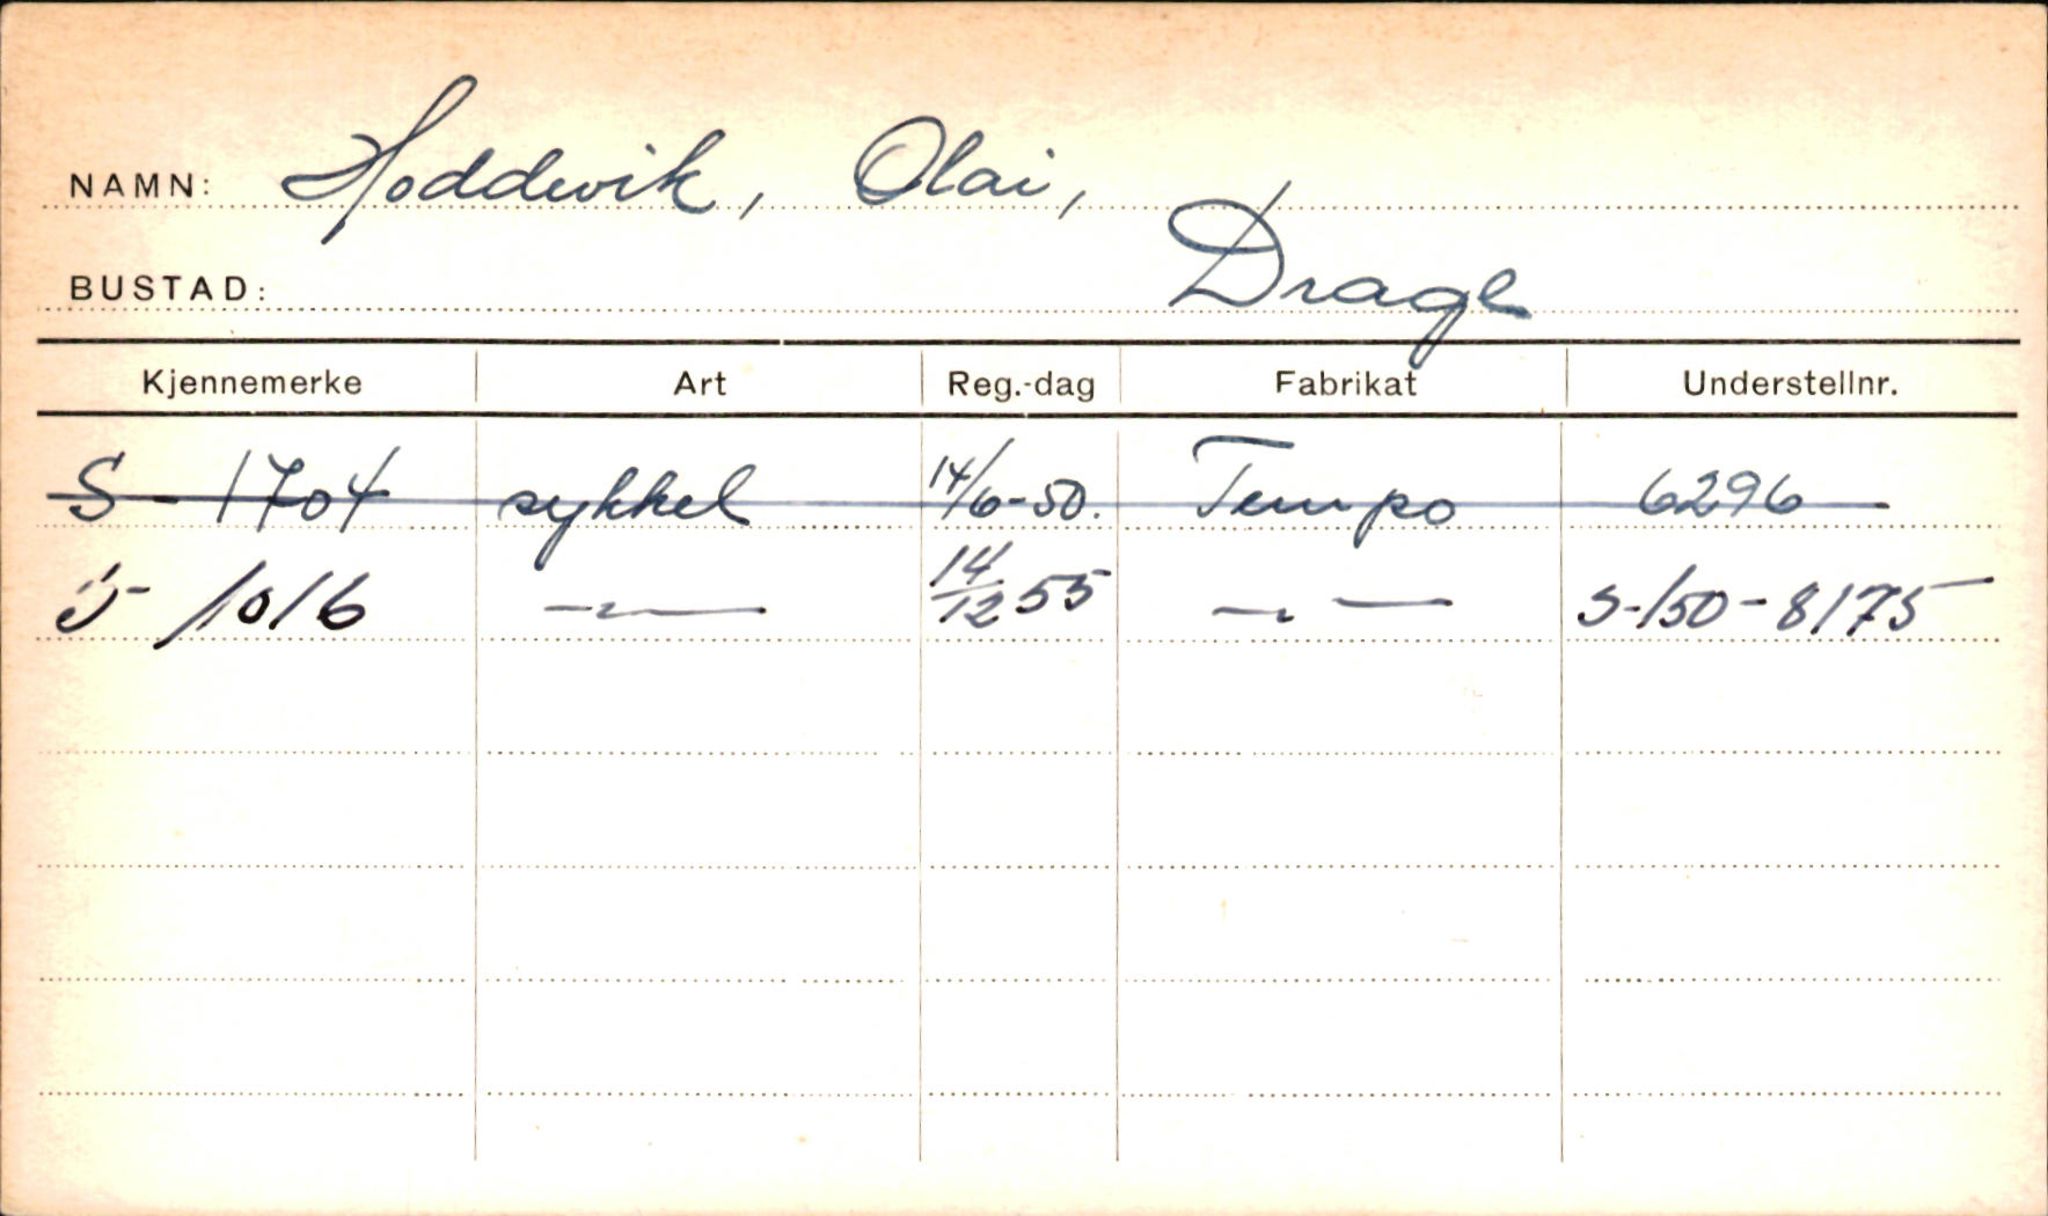 NAMN: Hoddevik, Olai,
BUSTAD: Drage
Kjennemerke Art Reg.-dag Fabrikat Understellnr.
S - 1704 sykkel 14/6-50. Tempo 6296
S - 1016 —„— 14/12 55 —„— S-150-8175